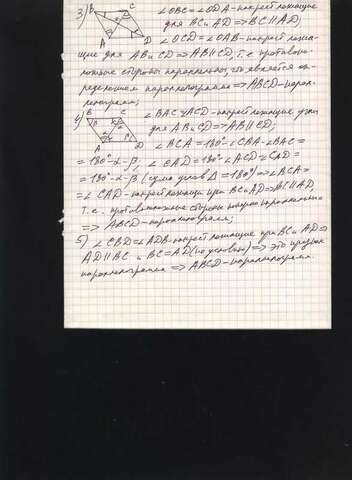 3) B C ∠OBC = ∠ODA - накрест лежащие
для BC и AD => BC || AD;
A D ∠OCD = ∠OAB - накрест лежа-
щие для AB и CD => AB || CD, т.е. противопо-
ложные стороны параллельны, что является оп-
ределением параллелограмма => ABCD - парал-
лелограмм;
4) B C ∠BAC и ∠ACD - накрест лежащие углы
для AB и CD => AB || CD;
A D ∠BCA = 180° - ∠CBA - ∠BAC =
= 180° - α - β, ∠CAD = 180° - ∠ACD - ∠CAD =
= 180° - α - β (сумма углов Δ = 180°) => ∠BCA =
= ∠CAD - накрест лежащие при BC и AD => BC || AD,
т.е. противоположные стороны попарно параллельны
=> ABCD - параллелограмм;
5) ∠CBD = ∠ADB - накрест лежащие при BC и AD =>
AD || BC и BC = AD (по условию) => это признак
параллелограмма => ABCD - параллелограмм.